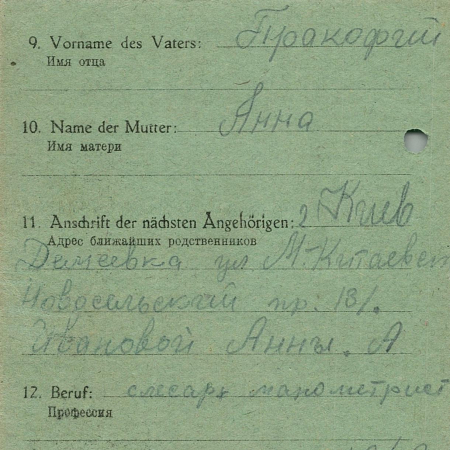 9. Vorname des Vaters: Пракофий
Имя отца
10. Name der Mutter: Анна
Имя матери
11. Anschrift der nächsten Angehörigen: г Киев
Адрес ближайших родственников
Демеевка ул М-Китаевск
Новосельский пр: 13/.
Ивановой Анны. А
12. Beruf: слесарь манометрист
Профессия